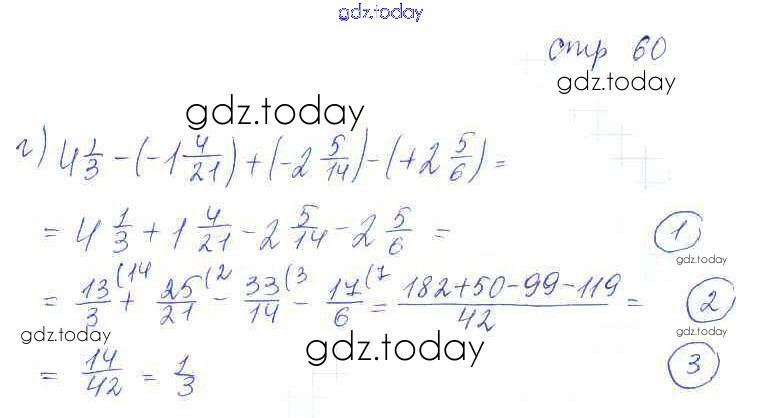 gdz.today
стр 60
gdz.today
gdz.today
г) 4 1/3 - (-1 4/21) + (-2 5/14) - (+2 5/6) =
= 4 1/3 + 1 4/21 - 2 5/14 - 2 5/6 = 1
gdz.today
= 13/3 (14 + 25/21 (2 - 33/14 (3 - 17/6 (7 = 182+50-99-119/42 = 2
gdz.today
gdz.today
gdz.today
= 14/42 = 1/3 3